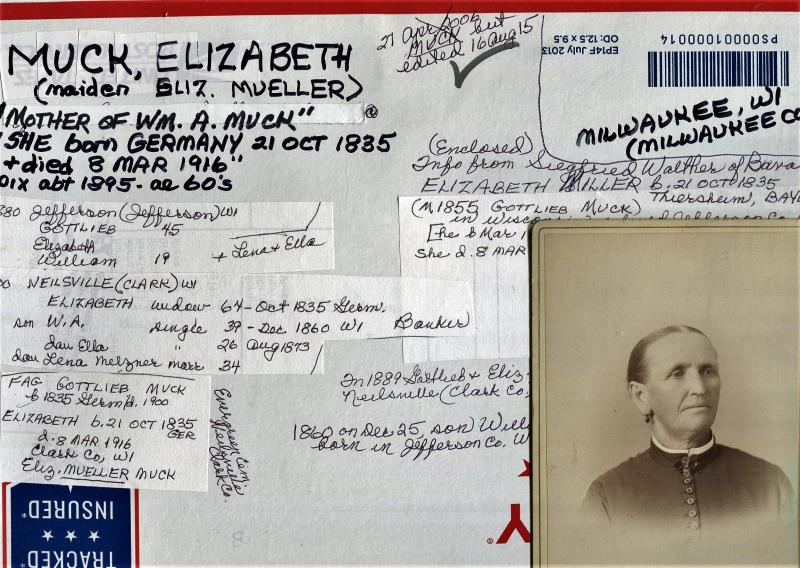 MUCK, ELIZABETH
(maiden ELIZ. MUELLER)
"MOTHER OF WM. A. MUCK"
SHE born GERMANY 21 OCT 1835
+ died 8 MAR 1916"
pix abt 1895 - ae 60's
21 apr 2006
MUCK but
edited 16 Aug 15
EP14F July 2013
OD: 12.5 x 9.5
PS00001000014
MILWAUKEE, WI
(MILWAUKEE CO
(Enclosed)
Info from Siegfried Walther of Bava
ELIZABETH MILLER b. 21 OCT 1835
(M 1855 GOTTLIEB MUCK) Thiersheim, BAY
in Wisconsin
[he b Mar 1
She d. 8 MAR
1880 Jefferson (Jefferson) WI
GOTTLIEB 45
Elizabeth
William 19 + Lena + Ella
00 NEILSVILLE (CLARK) WI
ELIZABETH widow 64 - Oct 1835 Germ.
son W.A. single 39 - Dec 1860 WI Banker
dau Ella " 26 Aug 1873
dau Lena Melzner marr 34
FAG GOTTLIEB MUCK
b 1835 Germ/d. 1900
ELIZABETH b. 21 OCT 1835
GER
d. 8 MAR 1916
Clark Co, WI
Eliz. MUELLER MUCK
Evergreen Cem.
Neillsville
Clark Co.
In 1889 Gottlieb + Eliz
Neilsville (Clark Co,
1860 on Dec 25, son Will
born in Jefferson Co. W
INSURED*
TRACKED
Y
®